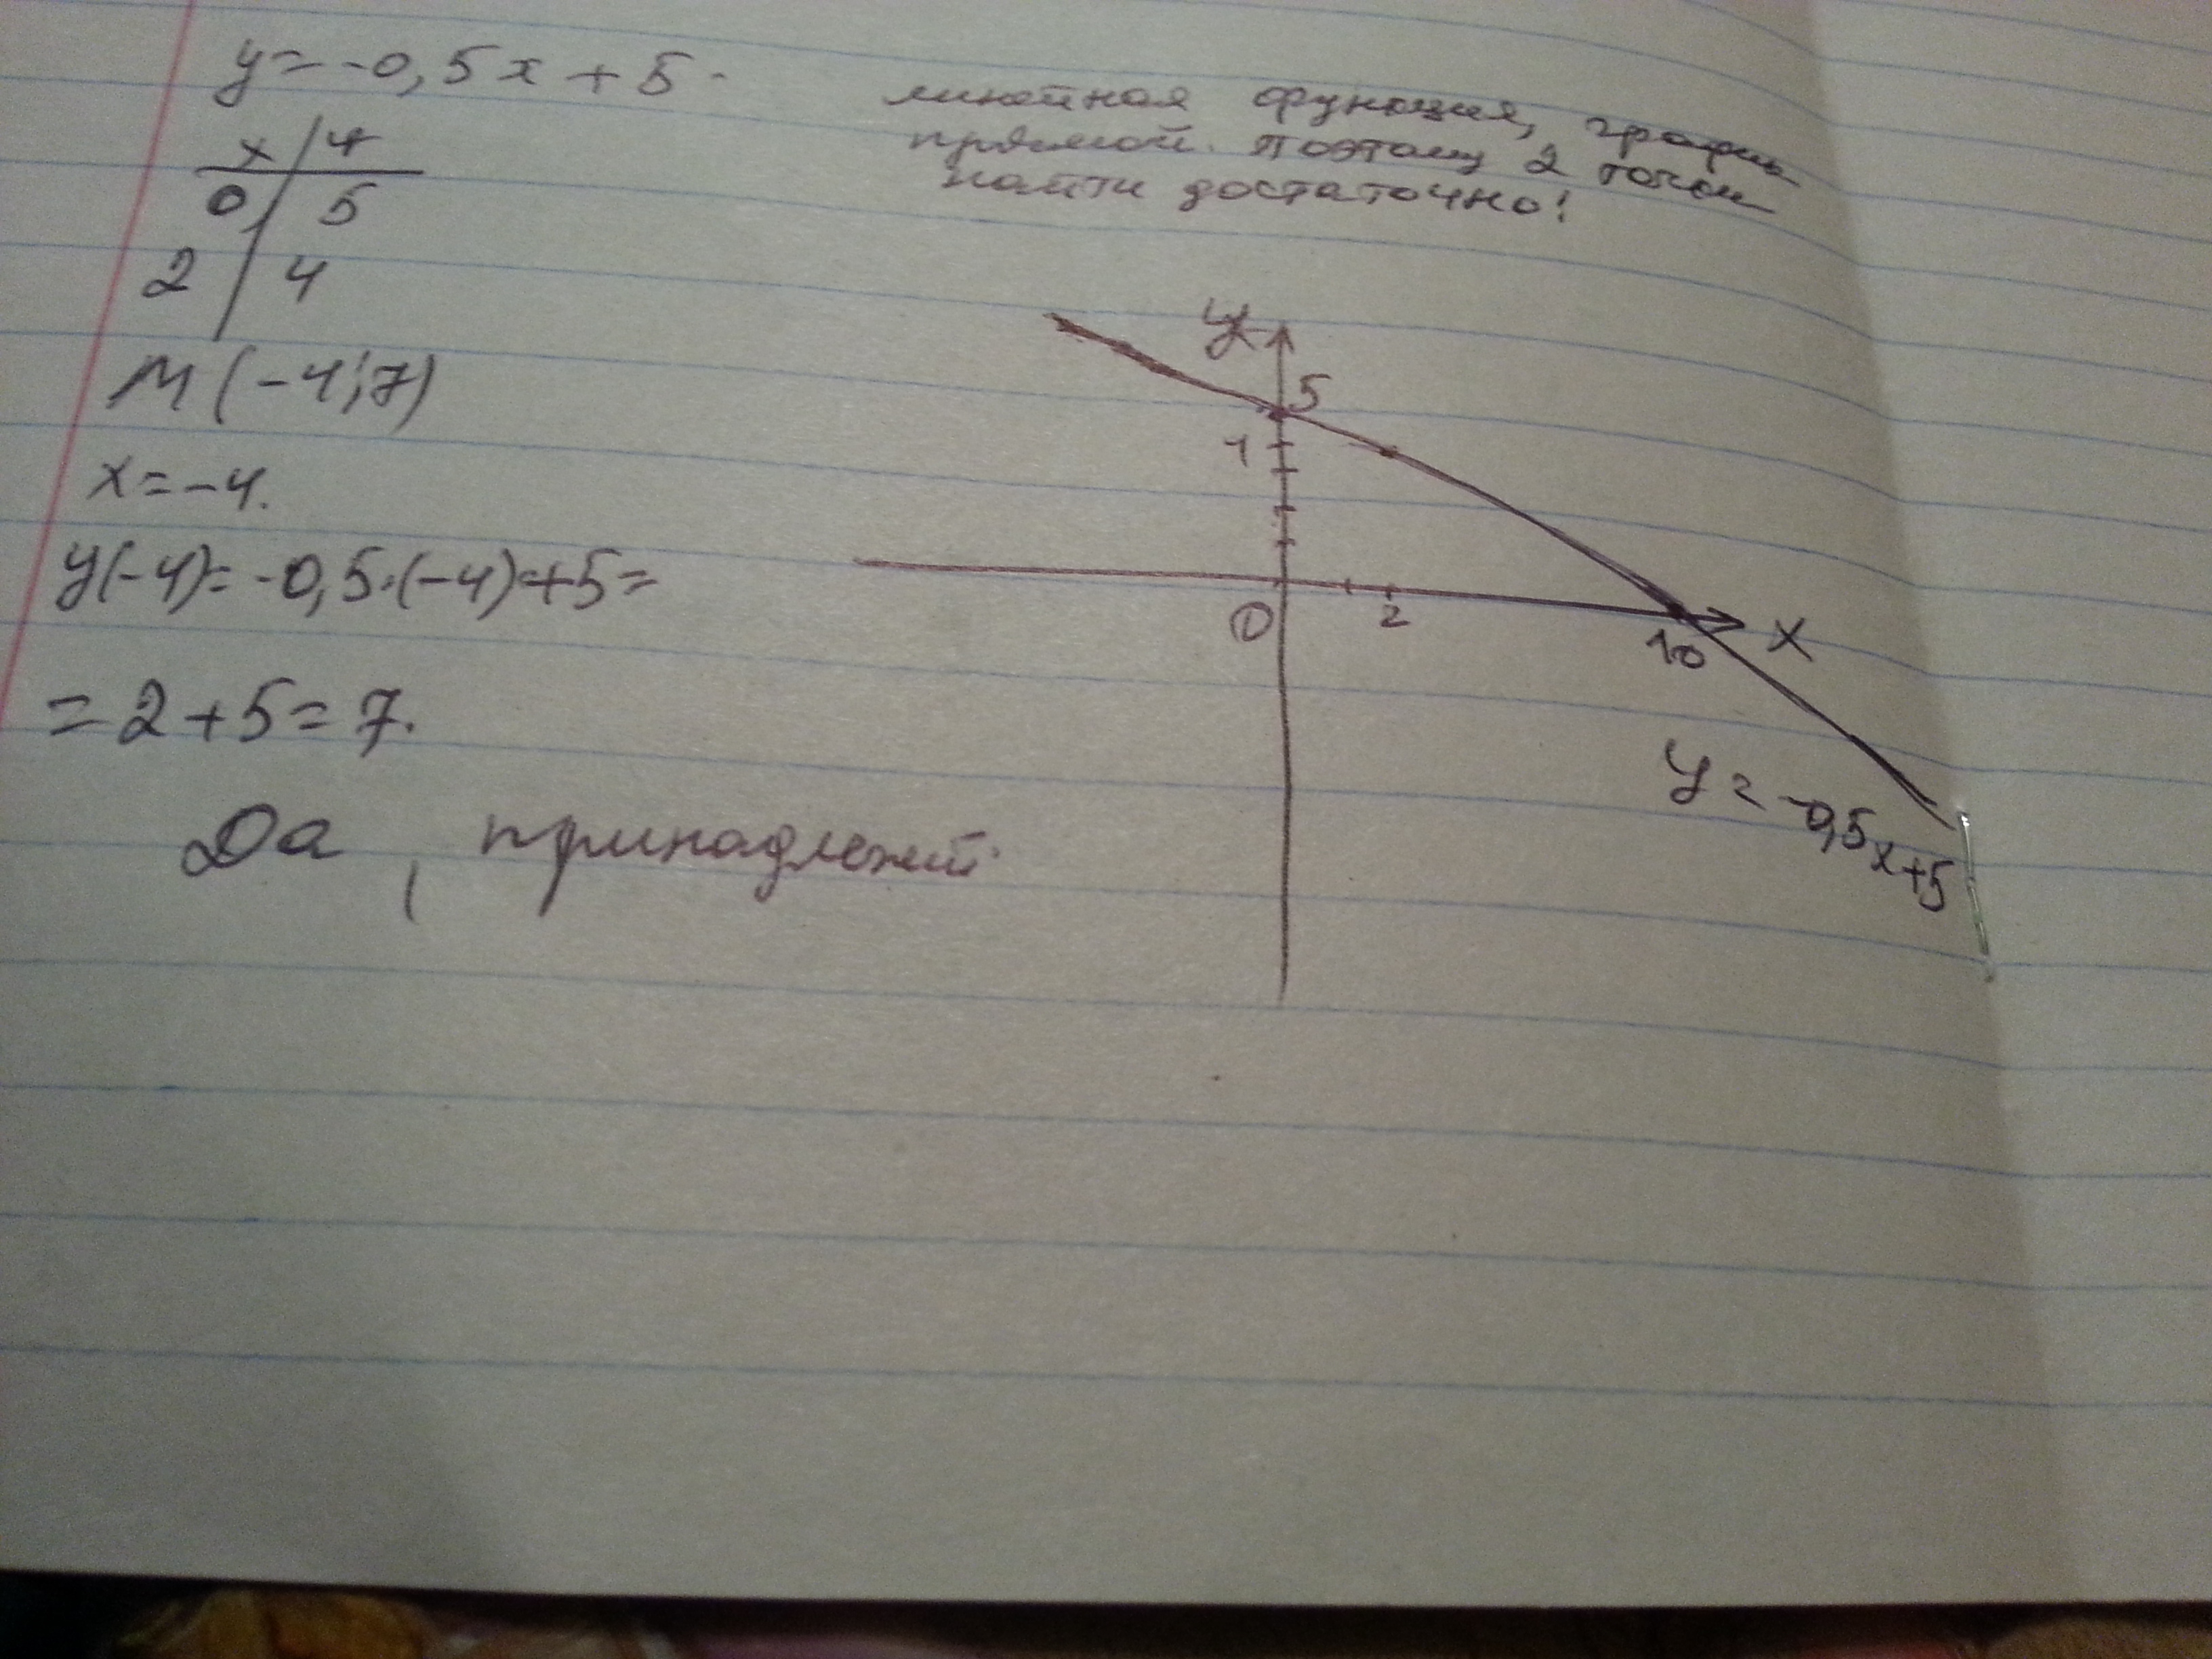 y=-0,5x+5.
x y
0 5
2 4
M(-4;7)
x=-4.
y(-4)=-0,5·(-4)+5=
=2+5=7.
Да, принадлежит.
линейная функция, график
прямой. Поэтому 2 точки
найти достаточно!
y
5
4
0 2 10 x
y=-0,5x+5